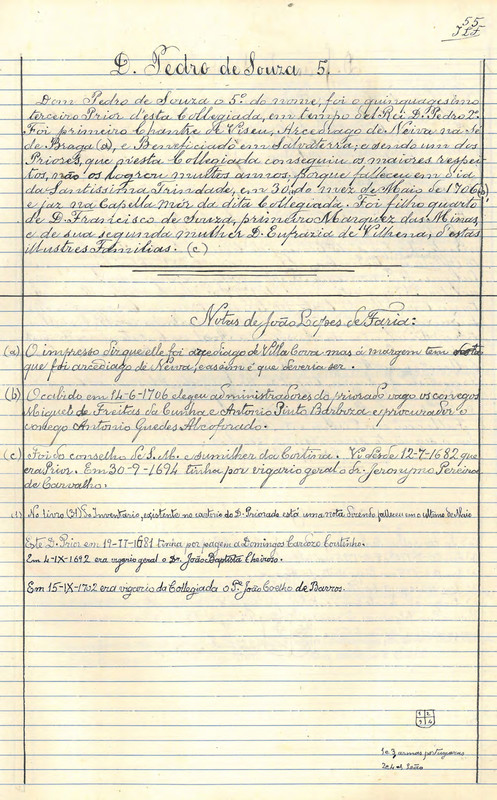 55
D. Pedro de Souza 5,
Dom Pedro de Souza o 5º. do nome, foi o quinquagesimo
terceiro Prior d'esta Collegiada, em tempo del Rei D. Pedro 2º.
Foi primeiro Chantre de Viseu, Arcediago de Neiva na Sé
de Braga (a), e Beneficiado em Salvaterra; e sendo um dos
Priores, que n'esta Collegiada conseguiu os maiores respei-
tos, não os logrou muitos annos, porque falleceu em dia
da Santissima Trindade, em 30, de mez de Maio de 1706 (b),
e jaz na Capella mór da dita Collegiada. Foi filho quarto
de D. Francisco de Souza, primeiro Marquez das Minas,
e de sua segunda mulher D. Eufrazia de Vilhena, d'estas
illustres Familias. (c)
Notas de João Lopes de Faria:
(a) O impresso diz que elle foi arcediago de Villa Cova mas á margem tem
que foi arcediago de Neiva, e assim é que deveria ser.
(b) O cabido em 14-6-1706 elegeu administradores do priorado vago os conegos
Miguel de Freitas da Cunha e Antonio Pinto Barboza e procurador o
conego Antonio Guedes Alcoforado.
(c) Foi do conselho de S. M. e sumilher da Cortina. Vi desde 12-7-1682 que
era Prior. Em 30-9-1694 tinha por vigario geral o dr. Jeronymo Pereira
de Carvalho.
(1) No livro do Inventario, existente no cartorio do D. Priorado está uma nota dizendo falleceu em o ultimo de Maio
Este D. Prior em 19-II-1681 tinha por pagem a Domingo Cardozo Coutinho.
Em 4-IX-1692 era vigario geral o Dr. João Baptista Cheiroso.
Em 15-IX-1702 era vigario da Collegiada o Pe. João Coelho de Barros.
1 2
3 4
1 e 3 armas portuguezas
2 e 4 Leão